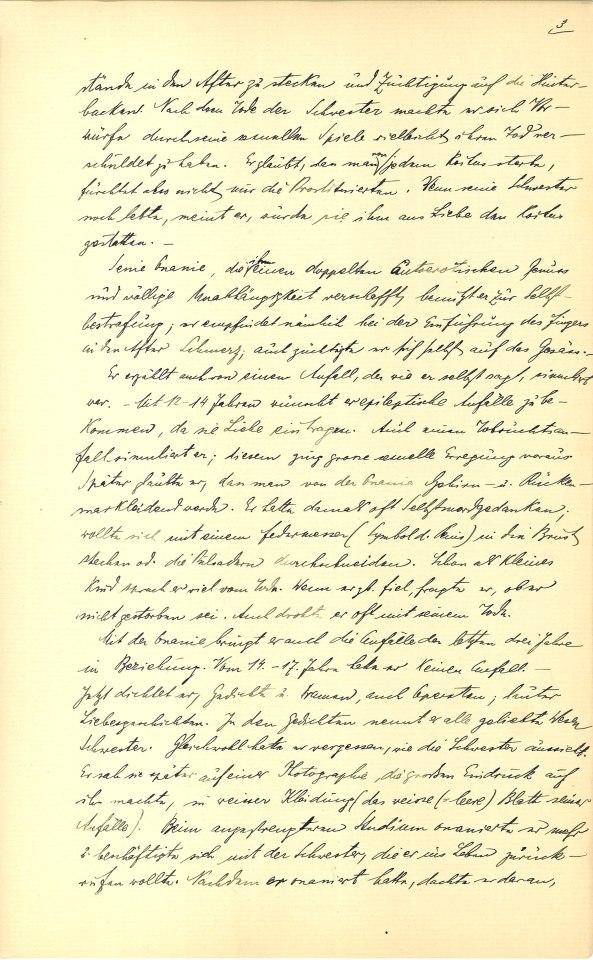 3
stände in den After zu stecken und Züchtigung auf die Hinter-
backen. Nach dem Tode der Schwester machte er sich Vor-
würfe durch seine sexuellen Spiele vielleicht ihren Tod ver-
schuldet zu haben. Er glaubt, dass man von jedem Koitus sterbe,
fürchtet aber nicht nur die Prostituierten. Wenn seine Schwester
noch lebte, meint er, würde sie ihm aus Liebe den Koitus
gestatten. —
Seine Onanie, die ihm einen doppelten autoerotischen Genuss
und völlige Unabhängigkeit verschafft, benützt er zur Selbst-
bestrafung; er empfindet nämlich bei der Einführung des Fingers
in den After Schmerz; auch züchtigte er sich selbst auf das Gesäss. —
Er erzählt auch von einem Anfall, der wie er selbst sagt, simuliert
war. - Mit 12-14 Jahren wünscht er epileptische Anfälle zu be-
kommen, da sie Liebe eintragen. Auch einen Tobsuchtsan-
fall simuliert er; diesem ging grosse sexuelle Erregung voraus
Später glaubte er, dass man von der Onanie Gehirn- u. Rücken-
markleidend werde. Er hatte damals oft Selbstmordgedanken;
wollte sich mit einem Federmesser (Symbol d. Penis) in die Brust
stechen od. die Pulsadern durchschneiden. Schon als kleines
Kind sprach er viel vom Tode. Wenn er z.B. fiel, fragte er, ob er
nicht gestorben sei. Auch drohte er oft mit seinem Tode.
Mit der Onanie bringt er auch die Anfälle der letzten drei Jahre
in Beziehung. Vom 14.-17. Jahre hatte er keinen Anfall. —
Jetzt dichtet er, Gedichte u. Dramen, auch Operetten; lauter
Liebesgeschichten. In den Gedichten nennt er alle geliebte Wesen
Schwester. Gleichwohl hatte er vergessen, wie die Schwester aussieht.
Er sah sie später auf einer Photographie, die grossen Eindruck auf
ihn machte, in weisser Kleidung (das weisse (= leere) Blatt seiner
Anfälle). Beim angestrengteren Studium onanierte er mehr
u. beschäftigte sich mit der Schwester, die er ins Leben zurück-
rufen wollte. Nachdem er onaniert hatte, dachte er daran,